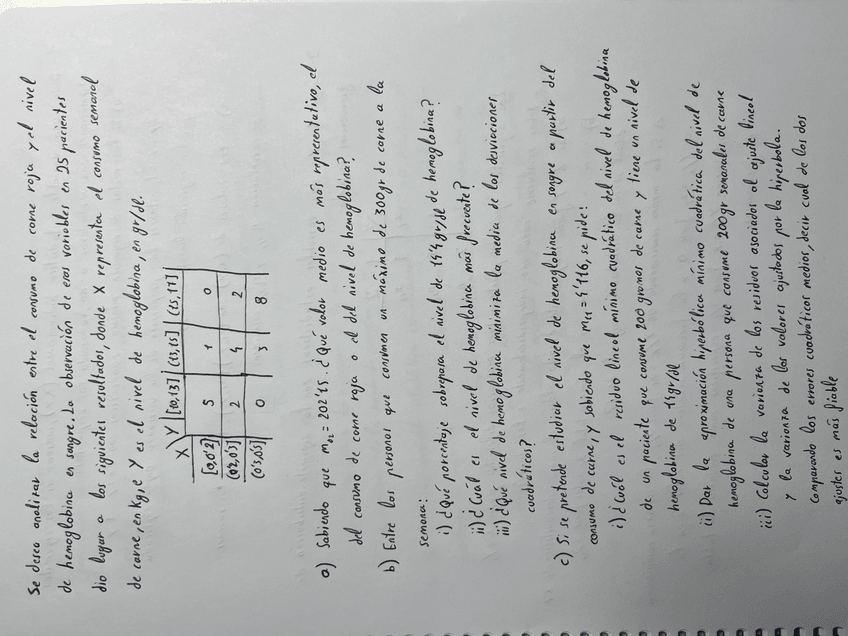 Se desea analizar la relación entre el consumo de carne roja y el nivel
de hemoglobina en sangre. La observación de esas variables en 25 pacientes
dio lugar a los siguientes resultados, donde X representa el consumo semanal
de carne, en Kg, e Y es el nivel de hemoglobina, en gr/dl.
X \ Y | [10,13] | (13,15] | (15,17]
[0,0'2] | 5 | 1 | 0
(0'2,0'3] | 2 | 4 | 2
(0'3,0'5] | 0 | 3 | 8
a) Sabiendo que m₀₂ = 202'15. ¿Qué valor medio es más representativo, el
del consumo de carne roja o el del nivel de hemoglobina?
b) Entre las personas que consumen un máximo de 300gr de carne a la
semana:
i) ¿Qué porcentaje sobrepasa el nivel de 14'4 gr/dl de hemoglobina?
ii) ¿Cuál es el nivel de hemoglobina más frecuente?
iii) ¿Qué nivel de hemoglobina minimiza la media de las desviaciones
cuadráticas?
c) Si se pretende estudiar el nivel de hemoglobina en sangre a partir del
consumo de carne, y sabiendo que m₁₁ = 4'116, se pide:
i) ¿Cuál es el residuo lineal mínimo cuadrático del nivel de hemoglobina
de un paciente que consume 200 gramos de carne y tiene un nivel de
hemoglobina de 14gr/dl
ii) Dar la aproximación hiperbólica mínimo cuadrática del nivel de
hemoglobina de una persona que consume 200gr semanales de carne
iii) Calcular la varianza de los residuos asociados al ajuste lineal
y la varianza de los valores ajustados por la hiperbola.
Comparando los errores cuadráticos medios, decir cual de los dos
ajustes es más fiable